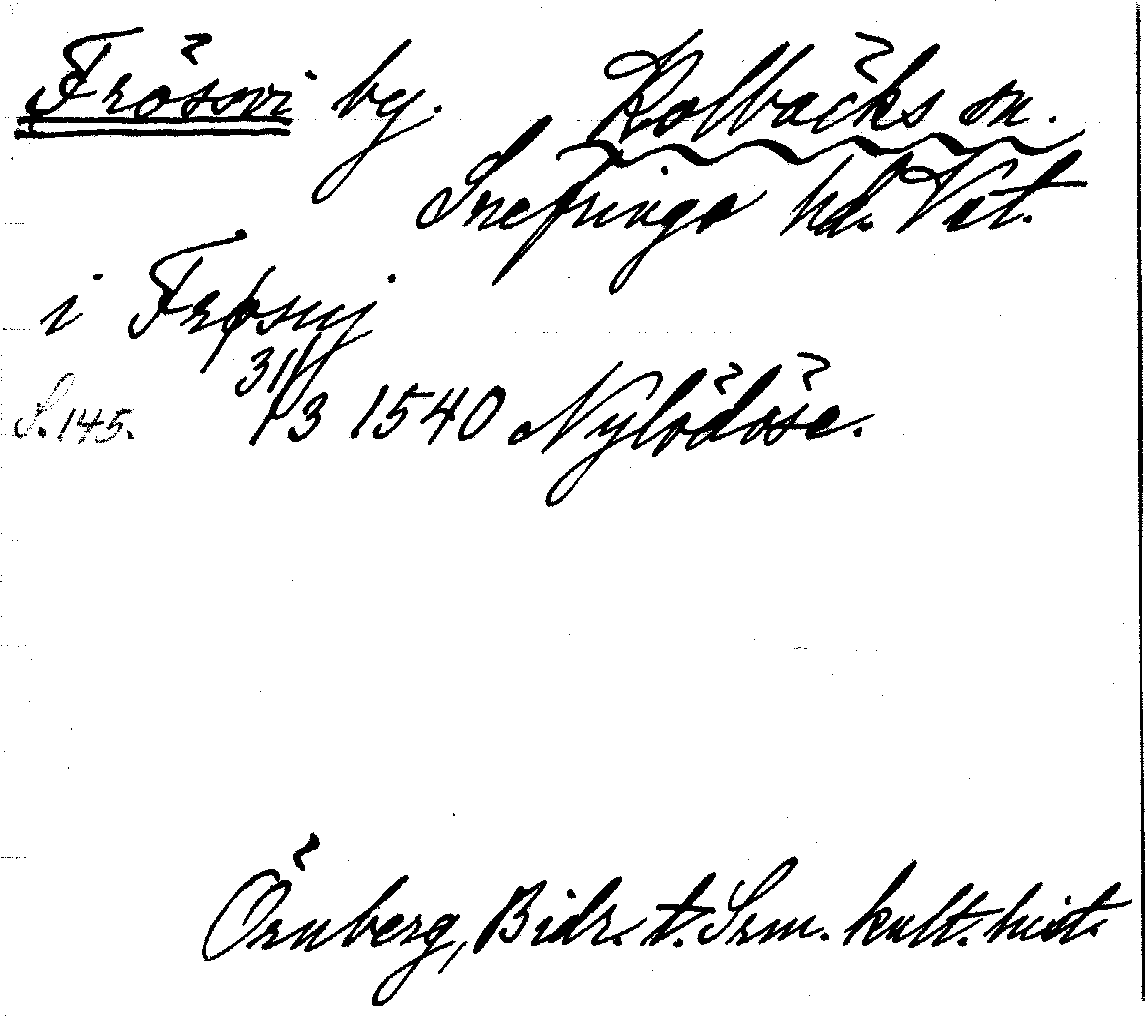 Frössvi by. Kolbäcks sn.
Snefringe hd. Vst.
i Frøsuj
S. 145. 31/3 1540 Nylödöse.
Örnberg, Bidr. t. Srm. kult. hist.